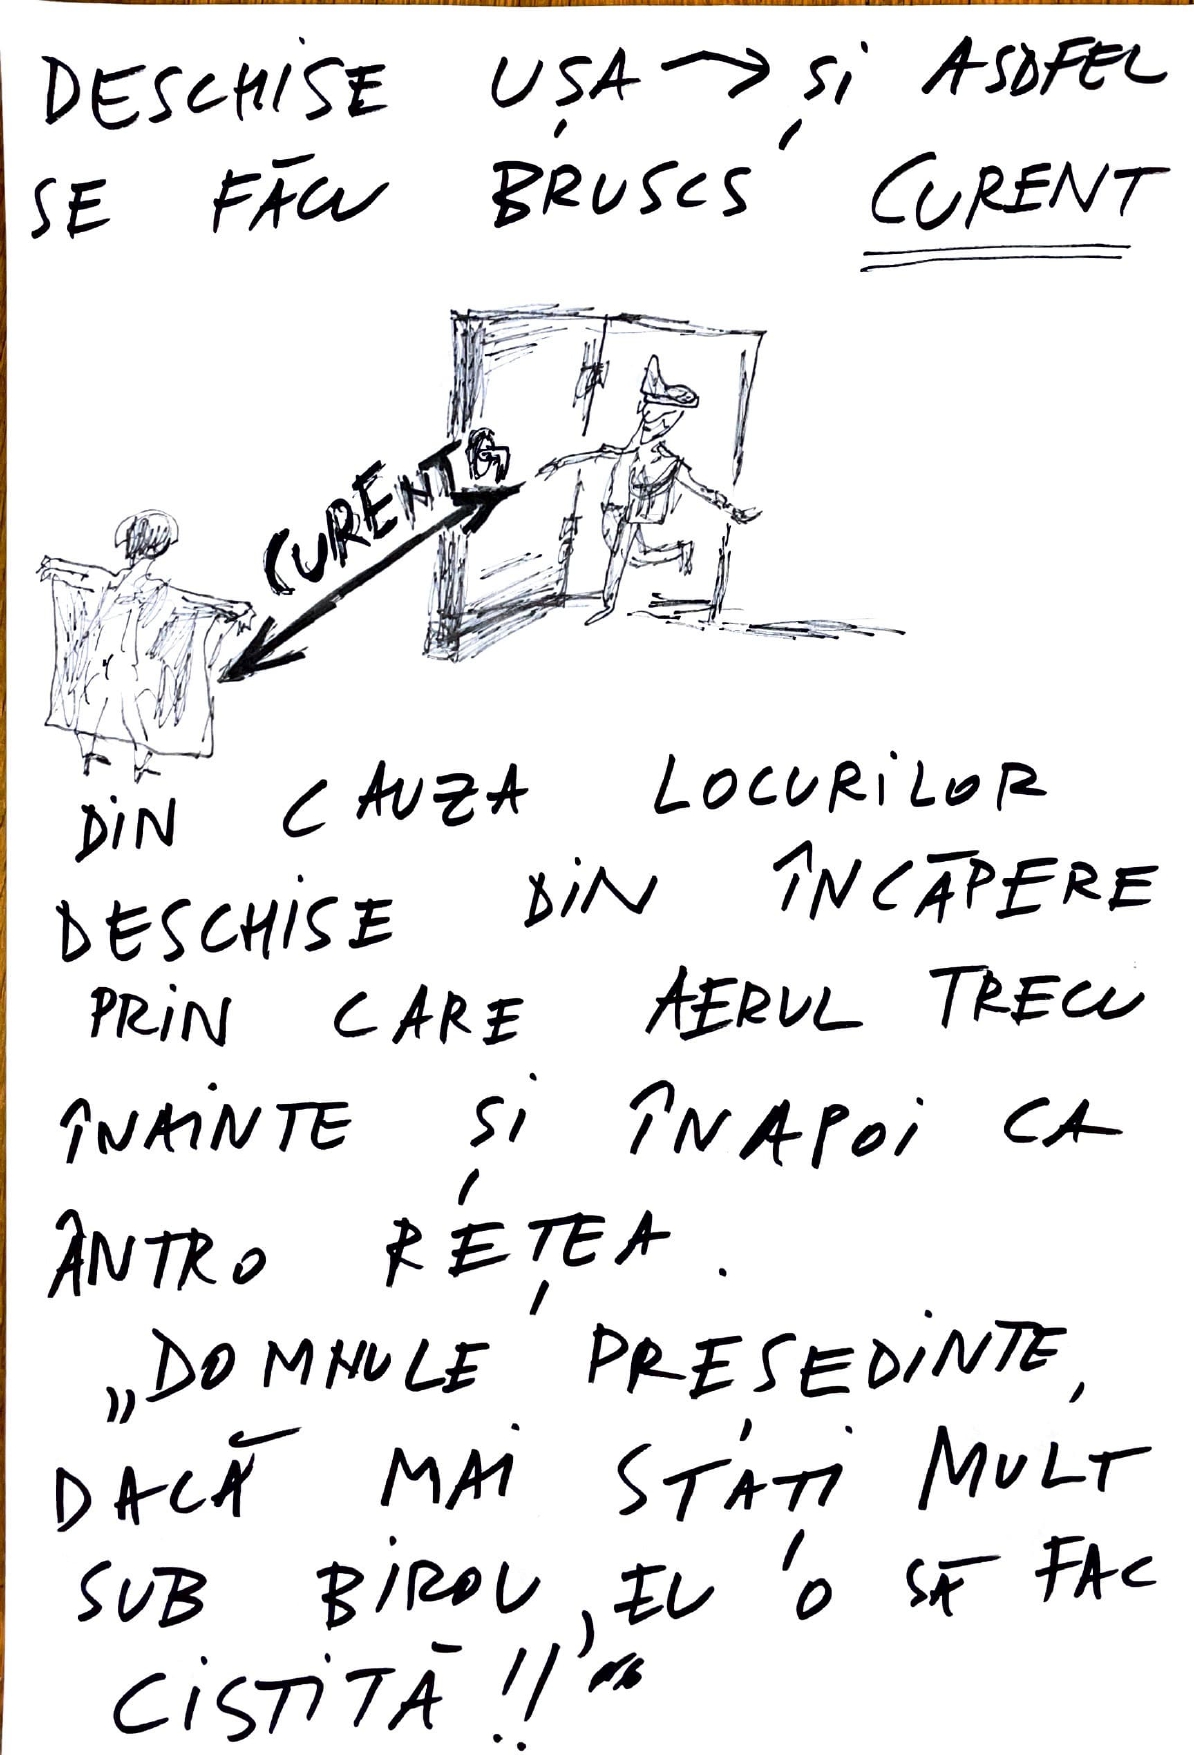 DESCHISE UȘA → ȘI ASDFEL
SE FĂCU BRUSCS CURENT
CURENT
DIN CAUZA LOCURILOR
DESCHISE DIN ÎNCĂPERE
PRIN CARE AERUL TRECU
ÎNAINTE ȘI ÎNAPOI CA
ÂNTRO REȚEA.
„DOMNULE PREȘEDINTE,
DACĂ MAI STAȚI MULT
SUB BIROU, EU O SĂ FAC
CISTITĂ!!”